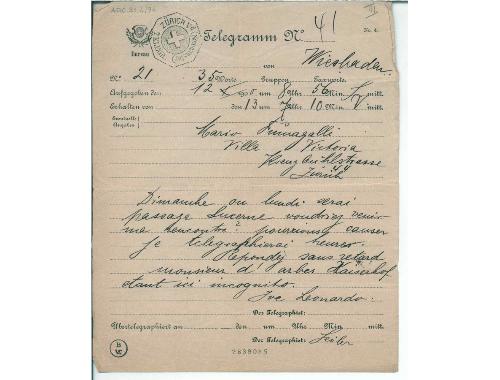 ARC. 3 I. 2/94
41
Telegramm Nº
Nr. 4.
ZÜRICH
Bureau
von Wiesbaden.
Nº 21 35 Worte Gruppen Taxworte.
Aufgegeben den 12 190 um 8 Uhr 56 Min mitt.
Erhalten von den 13 7 Uhr 10 Min mitt.
Eventuelle Angaben
Mario Fumagalli
Villa Victoria
Kreuzbühlstrasse
Zürich
Dimanche ou lundi serai
passage Lucerne voudriez venir
ma rencontre pourrions causer
je telegraphierai heures.
Repondez sans retard
monsieur d'arbes Kaiserhof
etant ici incognito.
Leonardo.
Der Telegraphist:
Übertelegraphiert an den um Uhr Min mitt.
Der Telegraphist:
2839085